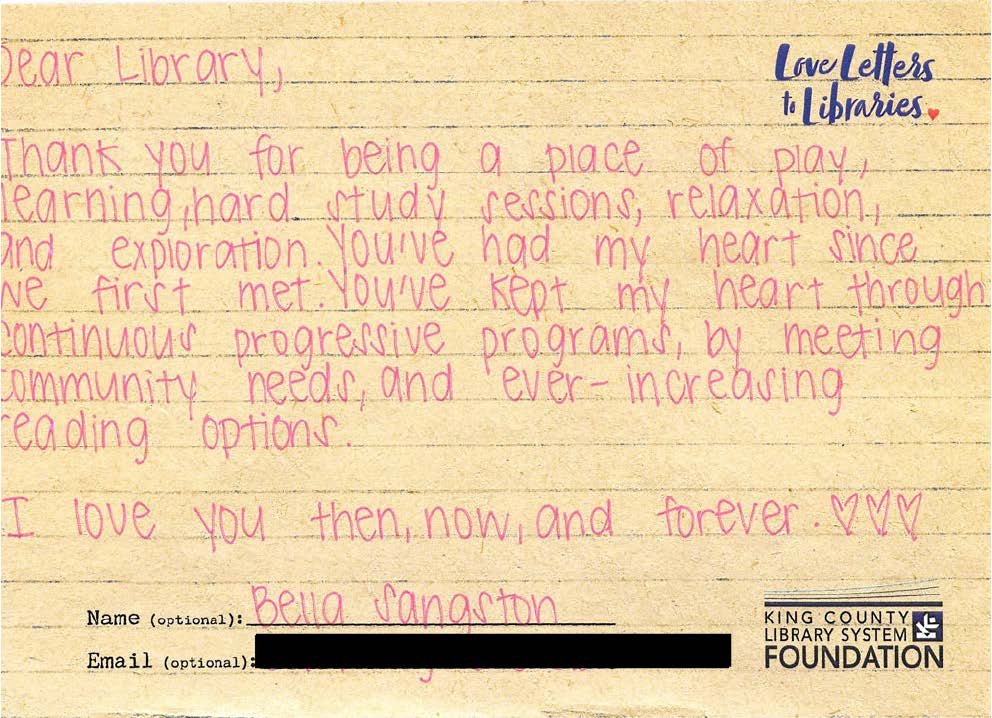 Dear Library,
Love Letters
to Libraries
Thank you for being a place of play,
learning, hard study sessions, relaxation,
and exploration. You've had my heart since
we first met. You've kept my heart through
continuous progressive programs, by meeting
community needs, and ever-increasing
reading options.
I love you then, now, and forever. ♡♡♡
Name (optional): Bella Sangston
Email (optional):
KING COUNTY
LIBRARY SYSTEM
FOUNDATION